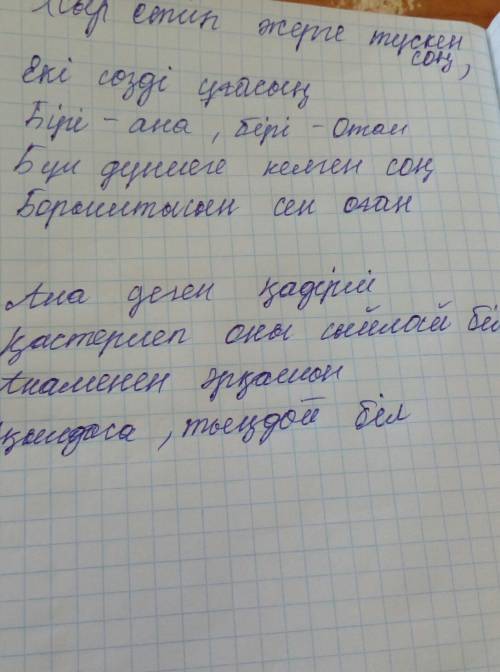 етип жерге түскен
соң,
Екі сөзді ұғасың
Бірі - ана, бірі - Отан
Бұл дүниеге келген соң
Борыштысың сен оған
Ана деген қадірлі
Қастерлеп оны сыйлай біл
Анаменен әрқашан
ақылдаса, тыңдай біл